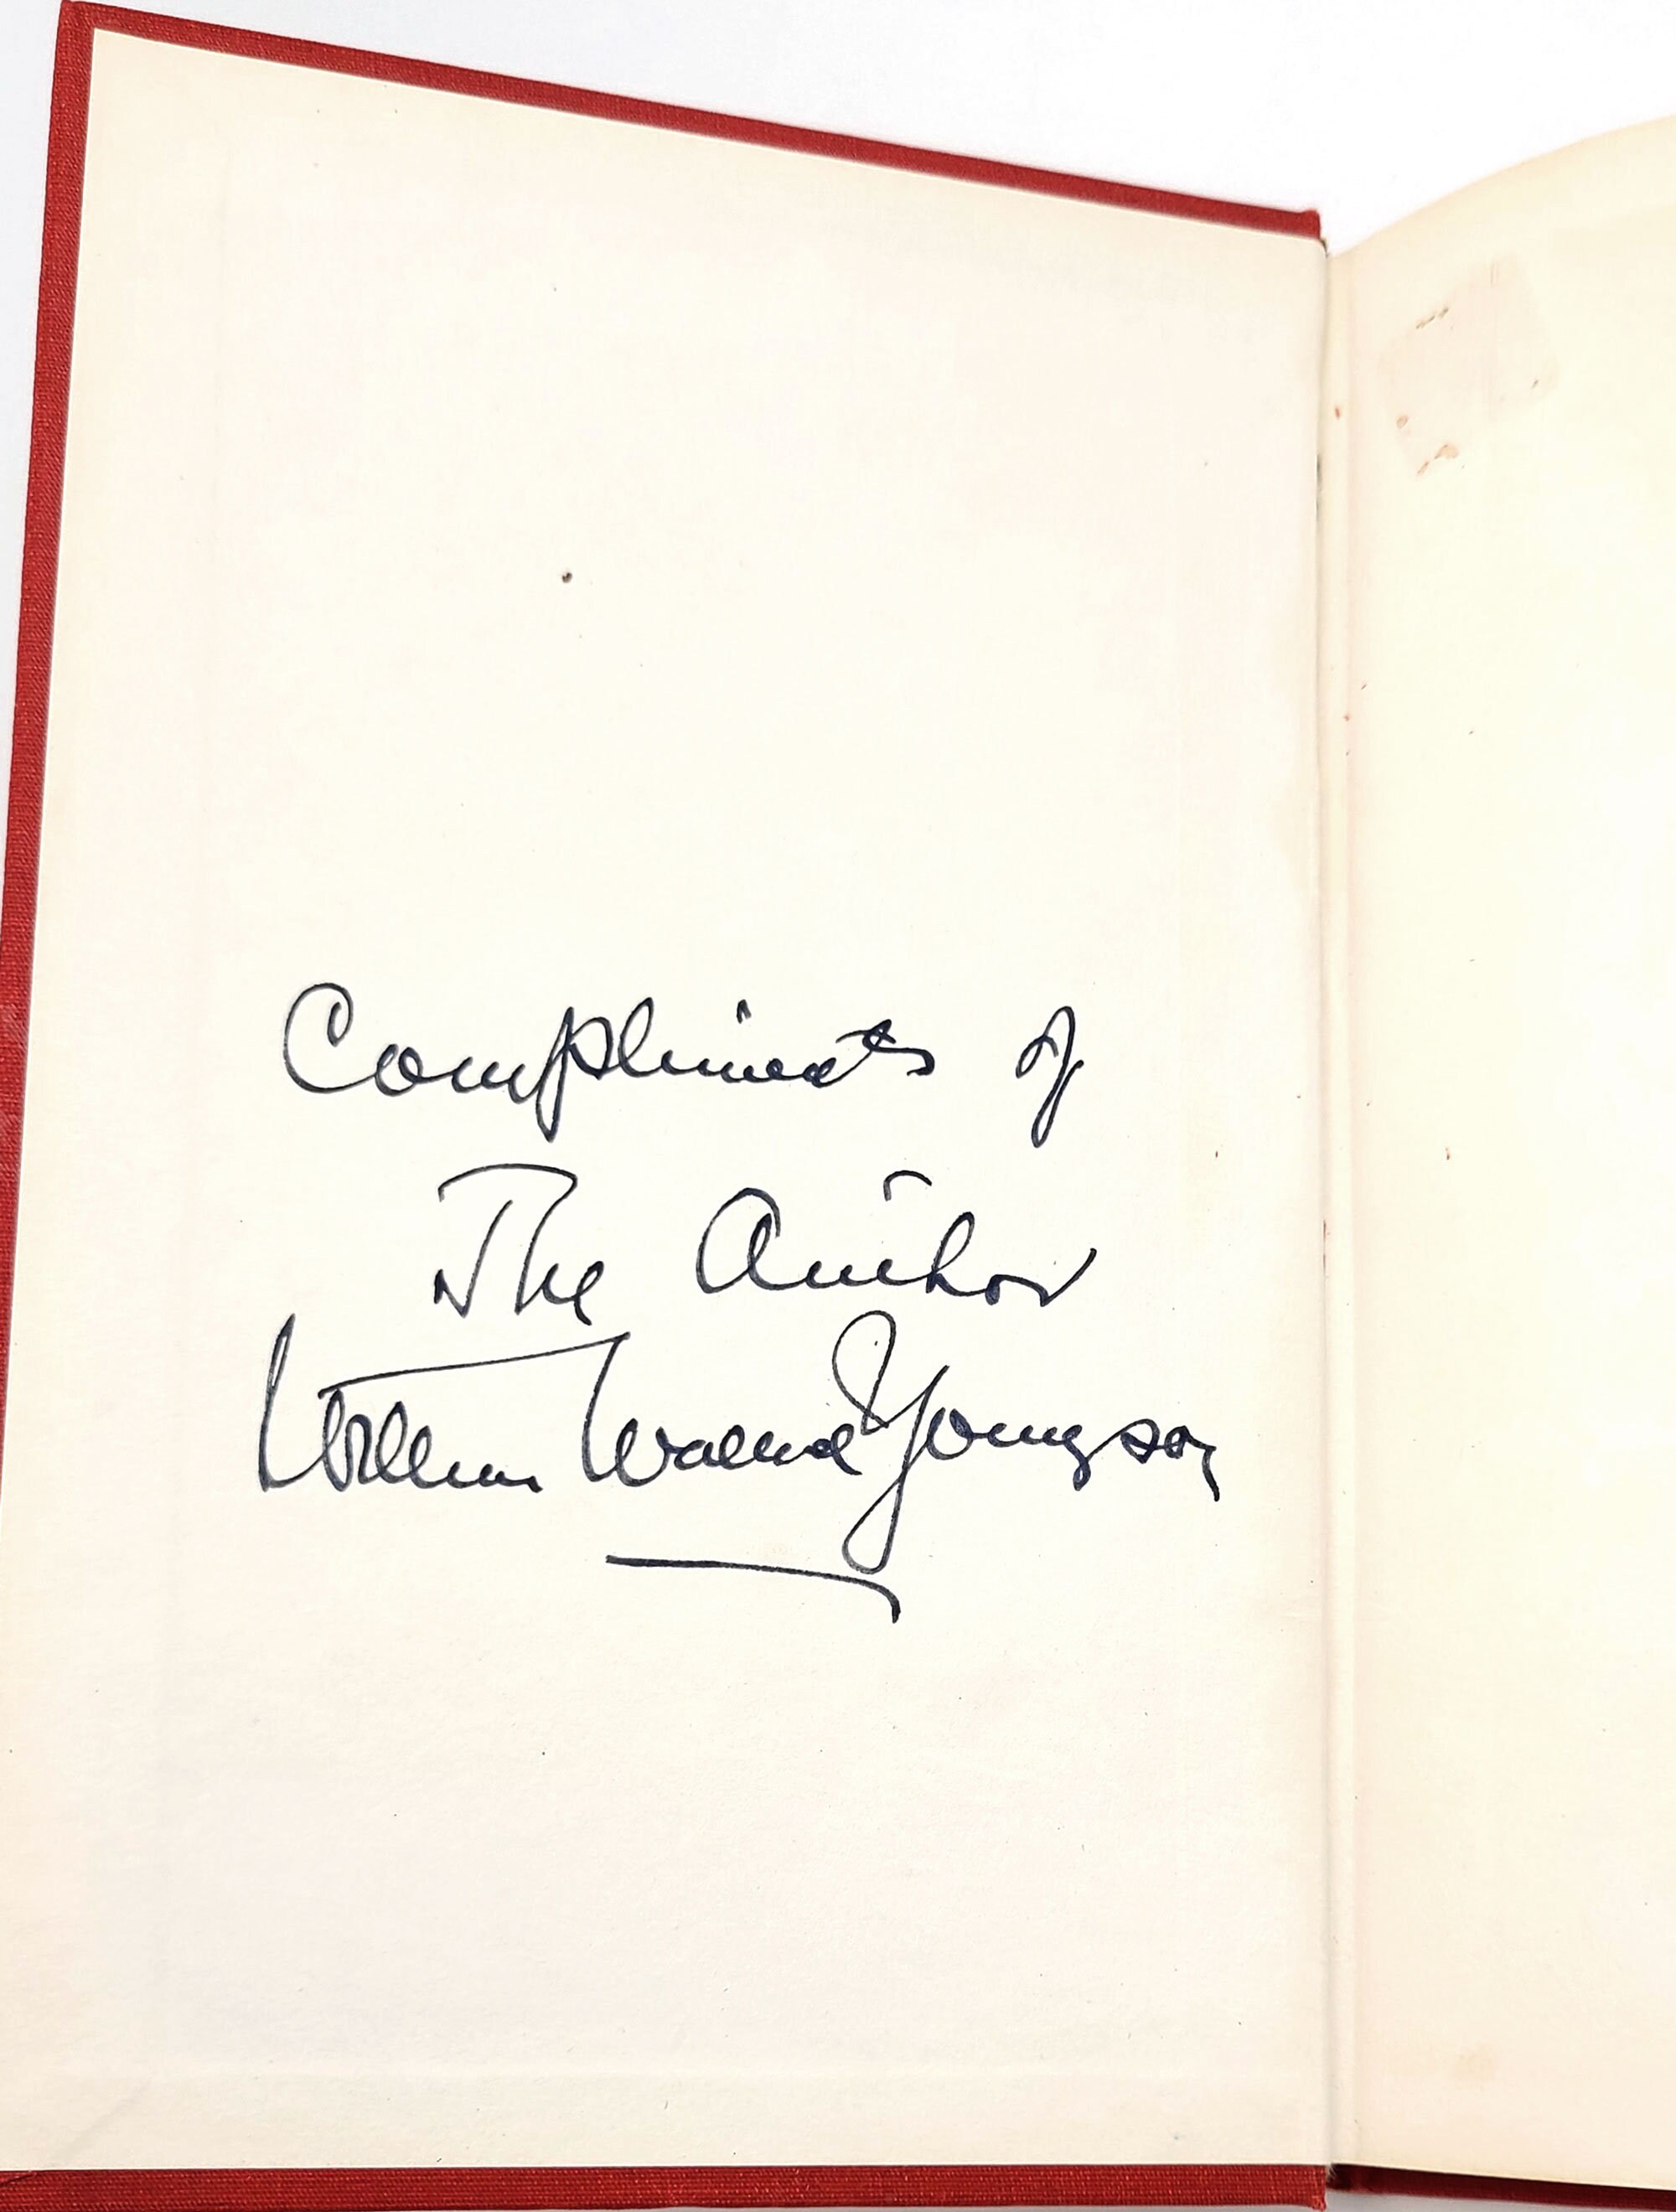 Compliments of
The Author
William Wallace Youngson